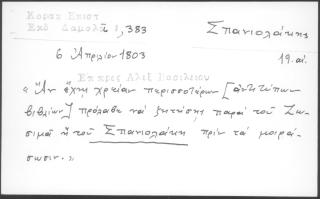 Κοραη Επιστ
Εκδ Δαμαλᾶ 1,383
Σπανιολάκης
6 Ἀπριλίου 1803
19. αἰ.
Επ προς Αλεξ Βασιλειου
« Ἄν ἔχῃς χρείαν περισσοτέρων [ἀντιτύπων
βιβλίων] πρόλαβε νά ζητήσῃς παρά τοῦ Ζω-
σιμᾶ ἤ τοῦ Σπανιολάκη πρίν τά μοιρά-
σωσιν.»